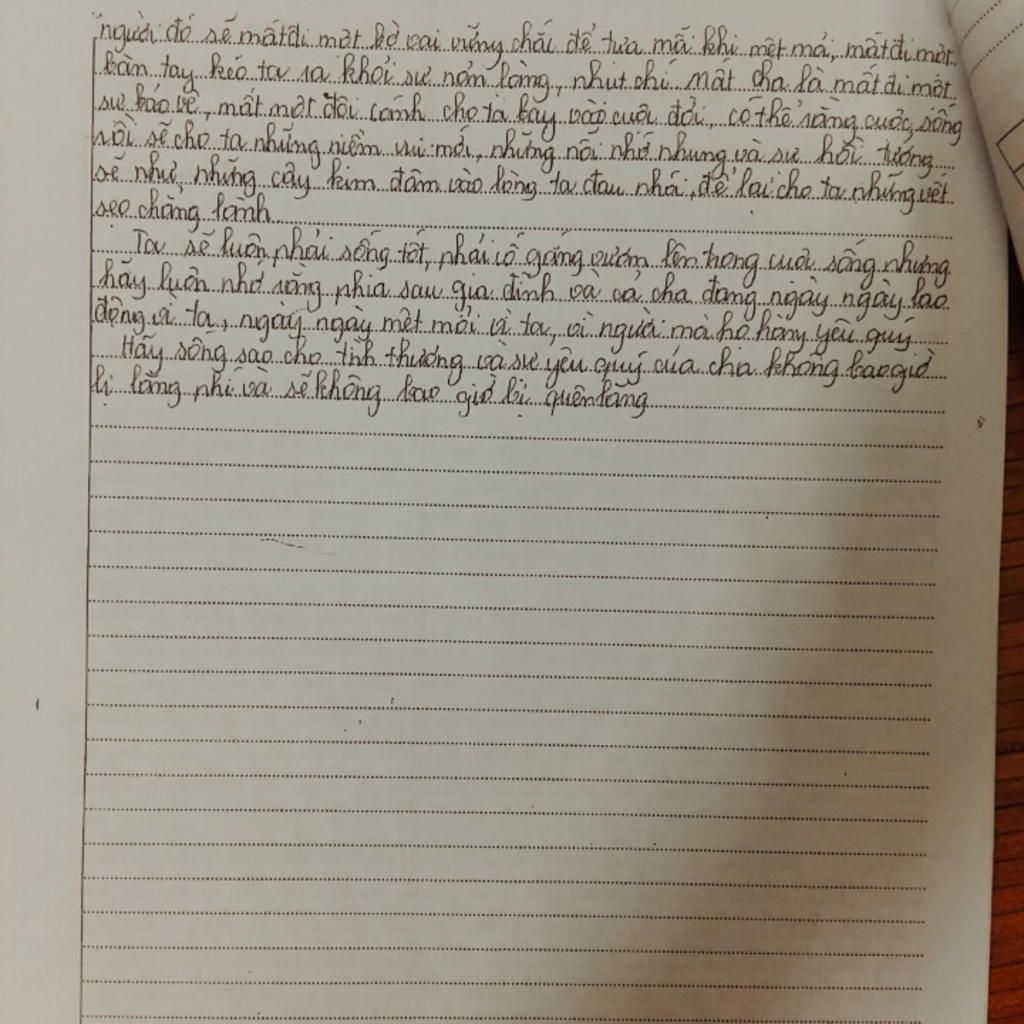 người đó sẽ mất đi một bờ vai vững chãi để tựa mỗi khi mệt mỏi, mất đi một
bàn tay kéo ta ra khỏi sự nản lòng, nhụt chí. Mất cha là mất đi một
sự bảo vệ, mất một đôi cánh cho ta bay vào cuộc đời, có thể rằng cuộc sống
rồi sẽ cho ta những niềm vui mới, những nỗi nhớ nhung và sự hồi tưởng
sẽ như những cây kim đâm vào lòng ta đau nhói, để lại cho ta những vết
sẹo chẳng lành
Ta sẽ luôn phải sống tốt, phải cố gắng vươn lên trong cuộc sống nhưng
hãy luôn nhớ rằng phía sau gia đình và cả cha đang ngày ngày lao
động vì ta, ngày ngày mệt mỏi vì ta, vì người mà họ hằng yêu quý
Hãy sống sao cho tình thương và sự yêu quý của cha không bao giờ
bị lãng phí và sẽ không bao giờ bị quên lãng